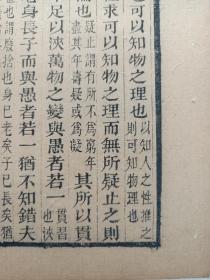 也可以知物之理也以知人之性推之
則可知物理也
求可以知物之理而無所疑止之則
疑止謂有所不為窮年
盡其年壽疑或為凝
其所以貫
足以浹萬物之變與愚者若一貫習
也浹
老身長子而與愚者若一猶不知錯夫
也謂廢捨也身已老矣子已長矣猶